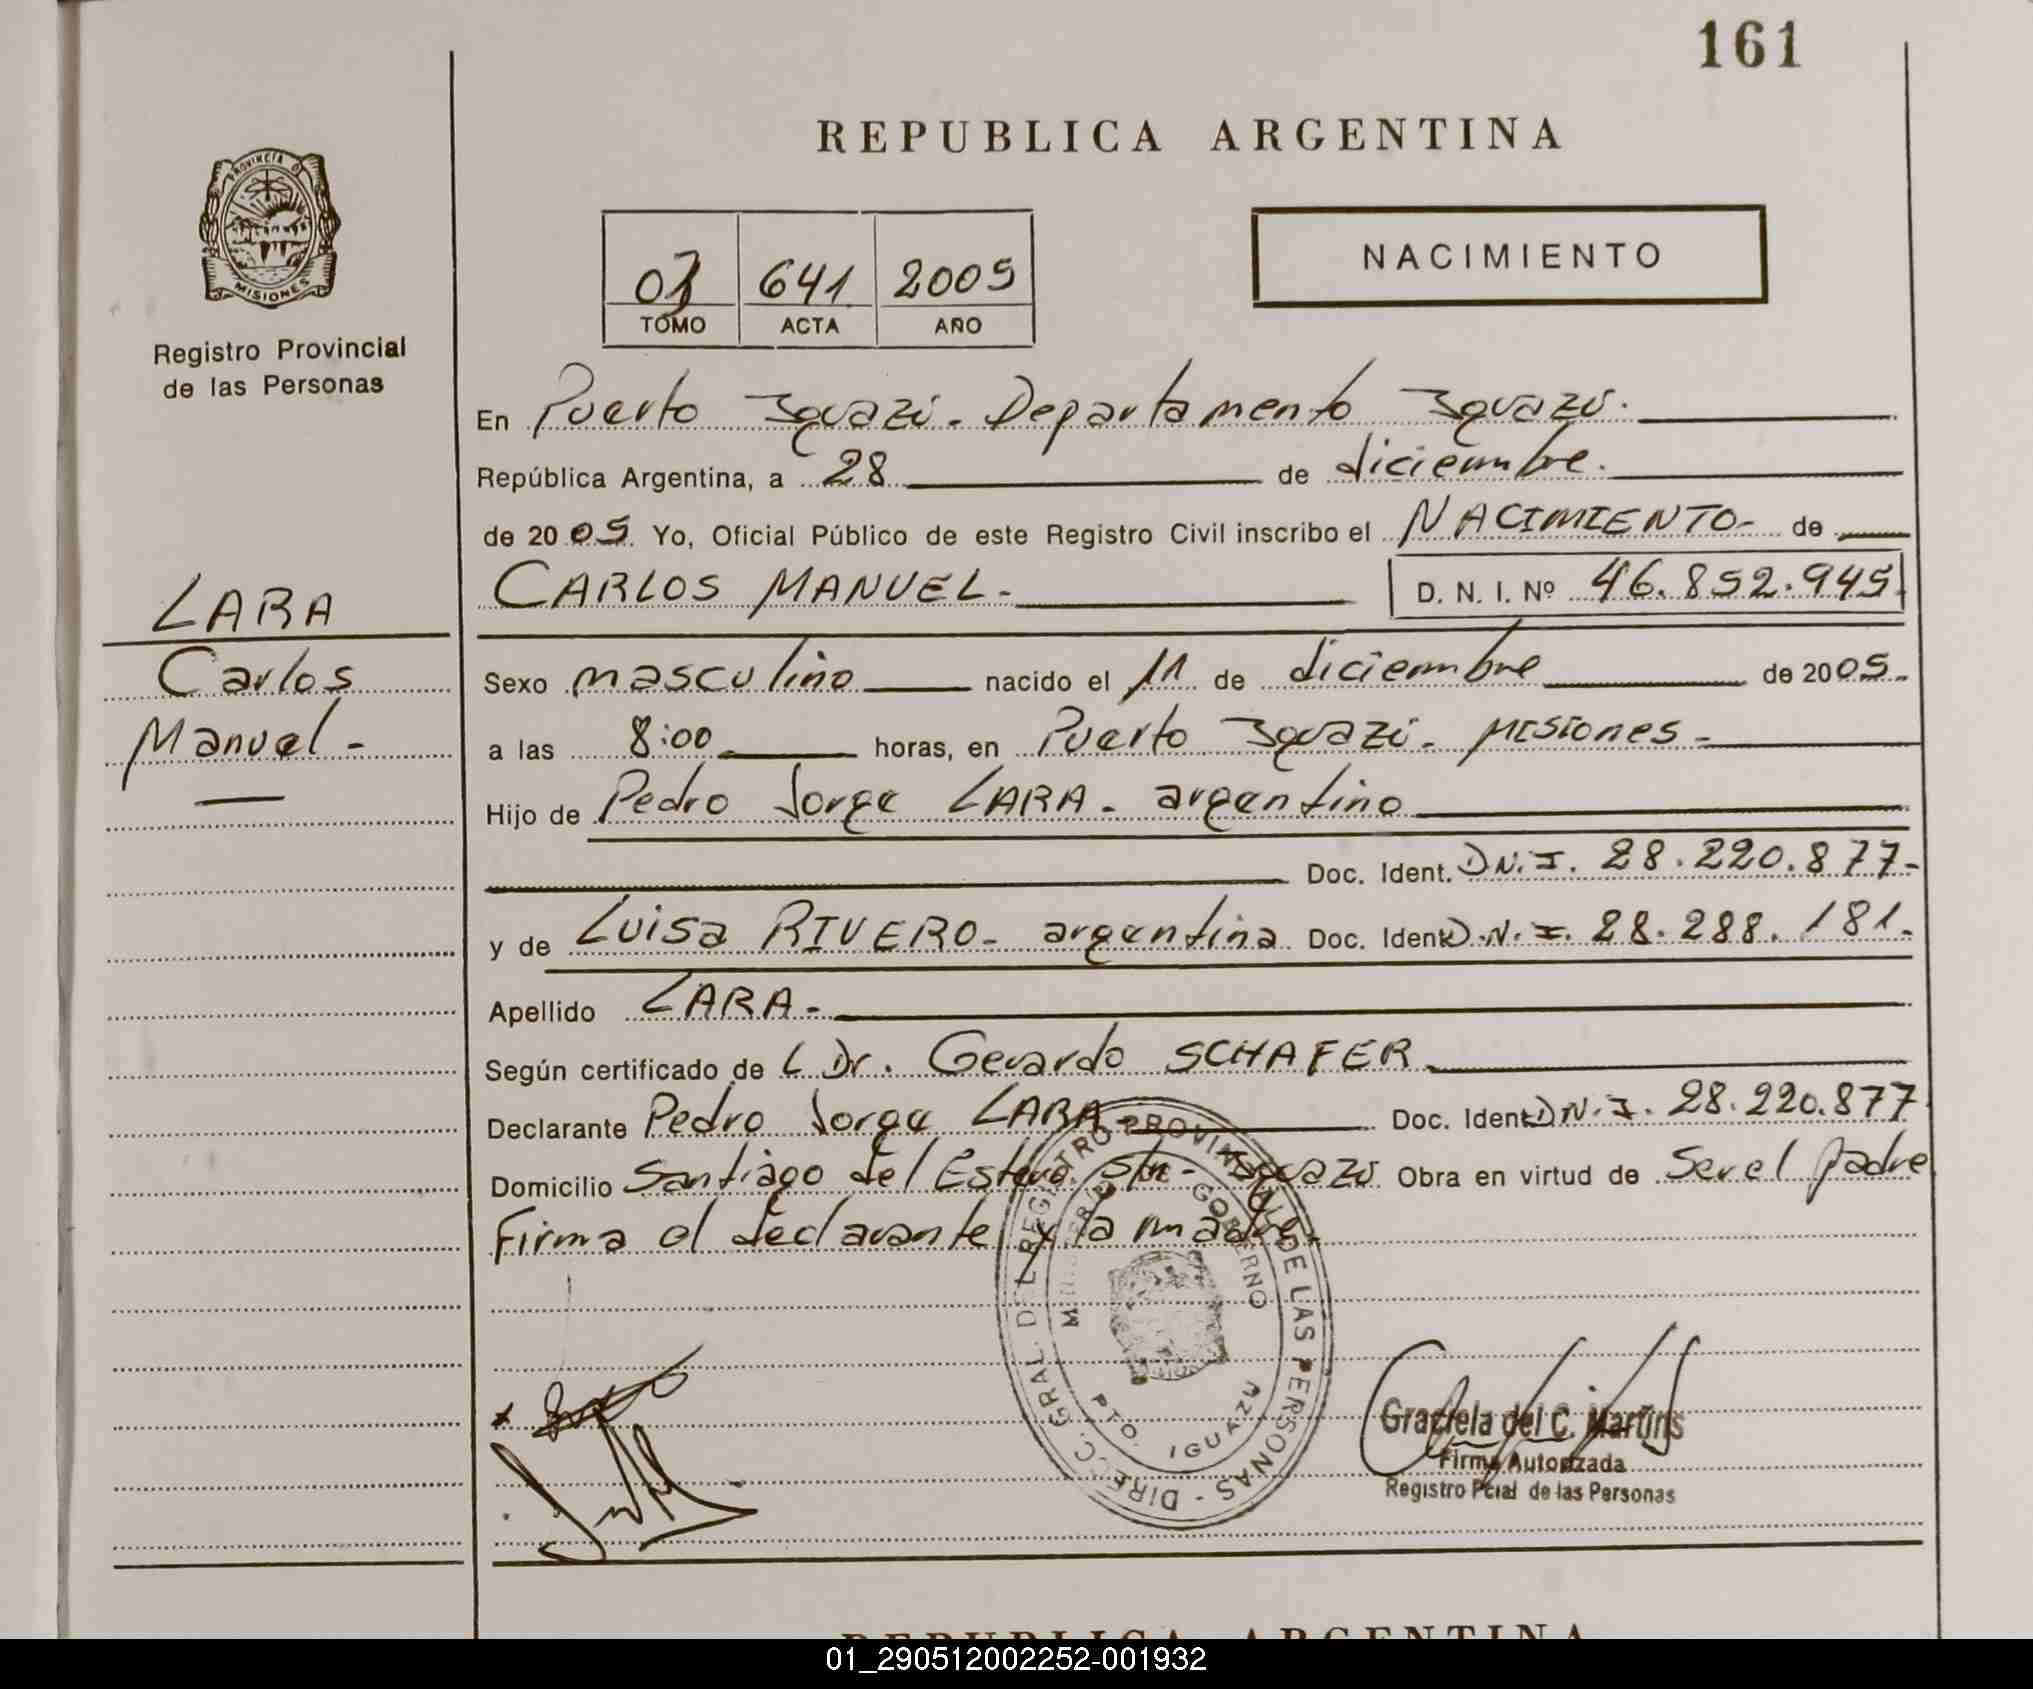 161
REPUBLICA ARGENTINA
PROVINCIA D
MISIONES
Registro Provincial
de las Personas
03 641 2005
TOMO ACTA AÑO
NACIMIENTO
En Puerto Iguazú - Departamento Iguazú.
República Argentina, a 28 de diciembre.
de 2005. Yo, Oficial Público de este Registro Civil inscribo el NACIMIENTO - de
CARLOS MANUEL - D. N. I. Nº 46.852.945.
LARA
Carlos
Manuel -
Sexo masculino nacido el 11 de diciembre de 2005.-
a las 8:00 horas, en Puerto Iguazú - Misiones -
Hijo de Pedro Jorge LARA - argentino
Doc. Ident. D.N.I. 28.220.877-
y de Luisa RIVERO - argentina Doc. Ident. D.N.I. 28.288.181.-
Apellido LARA -
Según certificado de L Dr. Gerardo SCHAFER
Declarante Pedro Jorge LARA - Doc. Ident. D.N.I. 28.220.877
Domicilio Santiago del Estero s/n - Iguazú Obra en virtud de Ser el padre
Firma el declarante y la madre.
DIRECC. GRAL. DEL REGISTRO PROVINCIAL DE LAS PERSONAS -
MINISTERIO DE GOBIERNO
PTO. IGUAZU
Graciela del C. Martins
Firma Autorizada
Registro Pcial de las Personas
REPUBLICA ARGENTINA
01_290512002252-001932